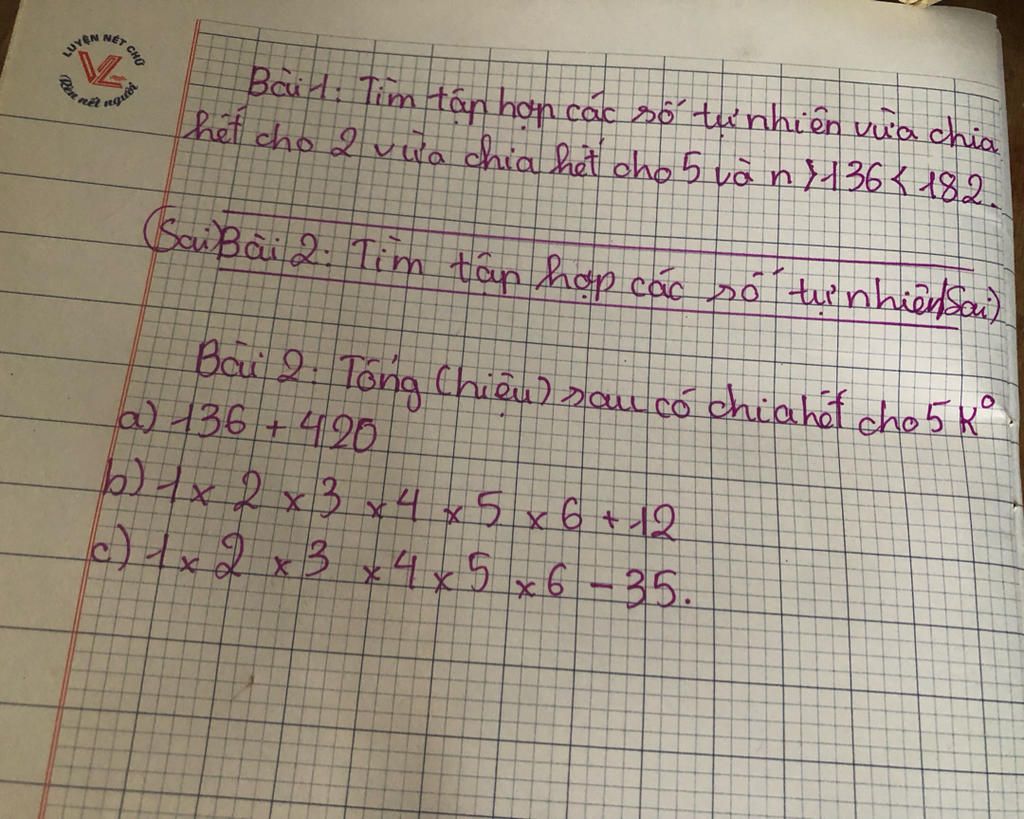 LUYỆN NÉT CHỮ
VL
Rèn nết người
Bài 1: Tìm tập hợp các số tự nhiên vừa chia
hết cho 2 vừa chia hết cho 5 và n > 136 < 182.
(Sai) Bài 2: Tìm tập hợp các số tự nhiên (Sai)
Bài 2: Tổng (hiệu) sau có chia hết cho 5 k°
a) 136 + 420
b) 1 × 2 × 3 × 4 × 5 × 6 + 12
c) 1 × 2 × 3 × 4 × 5 × 6 - 35.